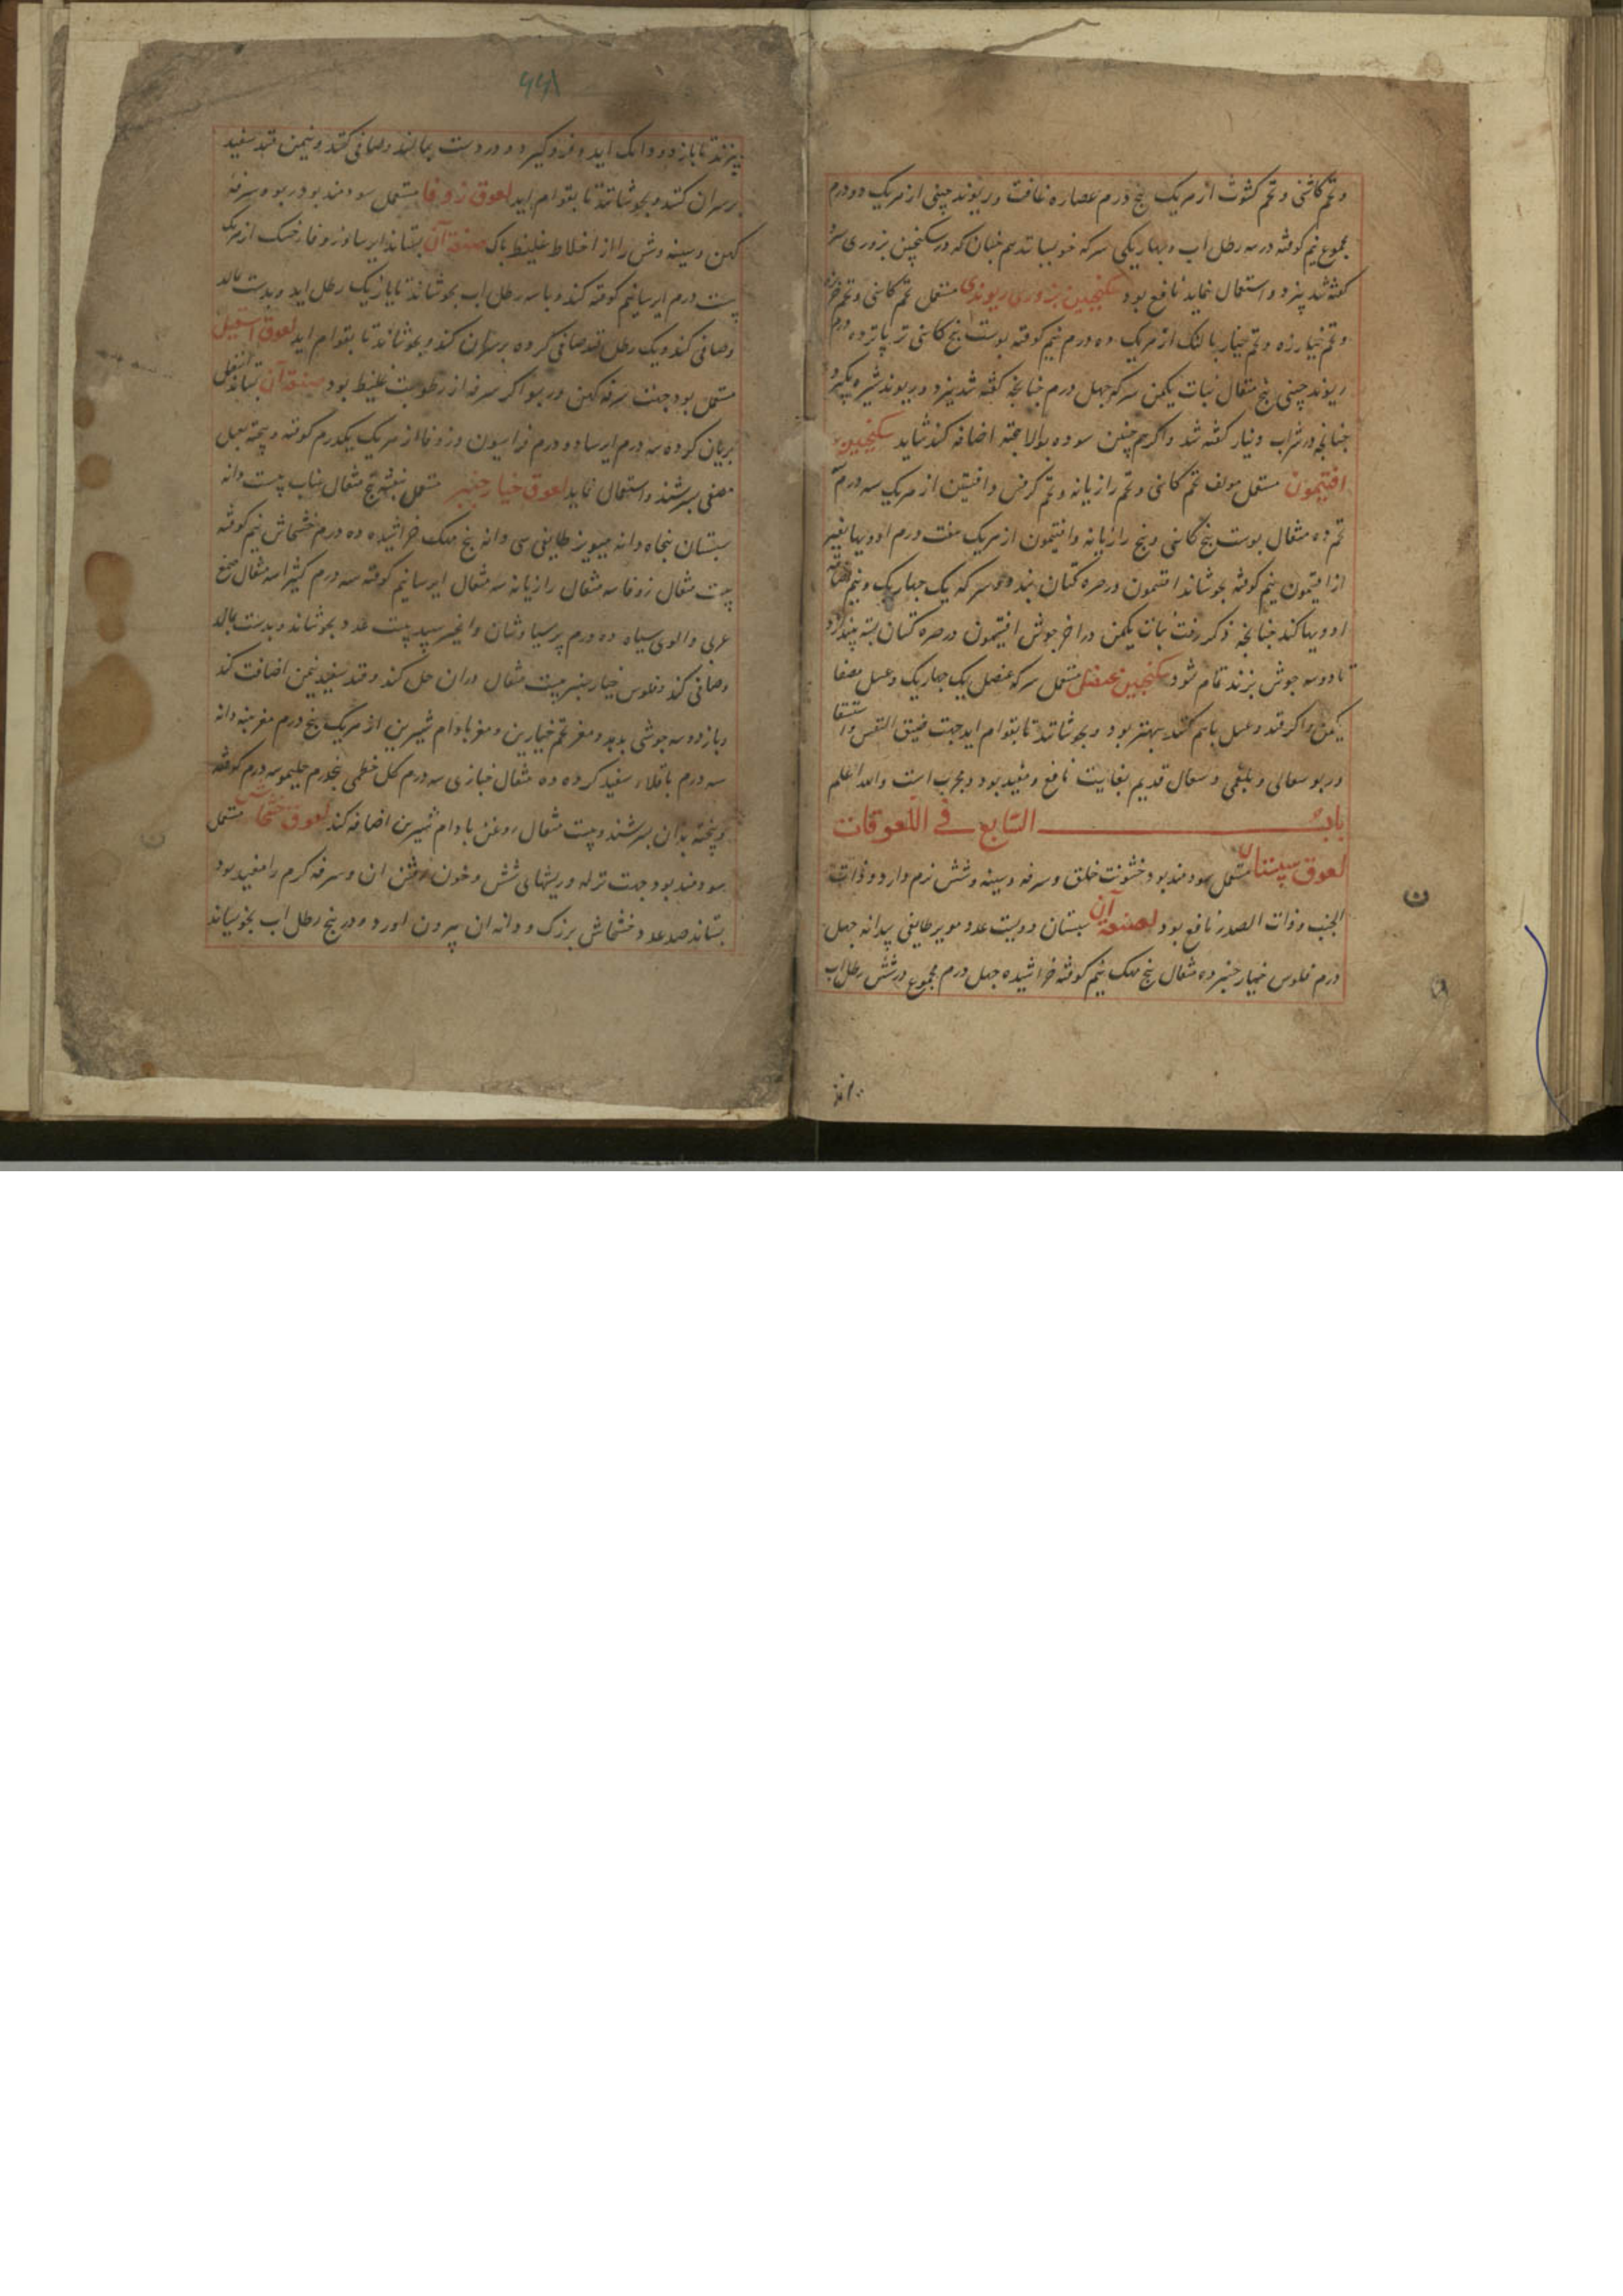 وتخم کاشنی وتخم کشوث از هریک پنج درم عصاره غافت وریوند چینی از هریک دو درم
مجموع نیم کوفته در سه رطل اب وچهاریکی سرکه خوبسانند هم چنان که در سکنجبین بزوری
گفته شد پزد واستعمال نماید نافع بود سکنجبین بزوری ریوندی مستعمل تخم کاسنی وتخم
وتخم خیارزه وتخم خیار بالنک از هریک ده درم نیم کوفته پوست بیخ کاسنی تر پانزده درم
ریوند چینی پنج مثقال نبات یکمن سرکه چهل درم چنانچه گفته شد پزد وریوند
چنانچه در شراب دینار گفته شد واگر هم چنین سوده بالا پخته اضافه کند شاید سکنجبین
افتیمون مستعمل مولف تخم کاسنی وتخم رازیانه وتخم کرفس وافسنتین از هریک سه درم
تخم ده مثقال پوست بیخ کاسنی وبیخ رازیانه وافتیمون از هریک هفت درم ادویها بغیر
از افتیمون نیم کوفته بجوشاند افتیمون در صره کتان بندد وسرکه یک چهاریک ونیم
ادویها کند چنانچه ذکر رفت نبات یکمن در اخر جوش افتیمون در صره کتان بسته
تا دو سه جوش بزند تمام شود سکنجبین عنصلی مستعمل سرکه عنصل یک چهاریک وعسل مصفا
یکمن واگر قند وعسل باهم کنند بهتر بود وبجوشانند تا بقوام اید جهت ضیق النفس واستسقا
وربو سعالی وبلغمی وسعال قدیم بغایت نافع ومفید بود ومجرب است والله اعلم
باب السابع فی اللعوقات
لعوق سپستان مستعمل سودمند بود خشونت حلق وسرفه وسینه وشش نرم دارد وذات
الجنب وذات الصدر نافع بود صنعة آن سپستان دویست عدد مویز طایفی بیدانه چهل
درم فلوس خیار چنبر ده مثقال بیخ مهک نیم کوفته خراشیده چهل درم مجموع در شش رطل اب
۶۶۸
بپزند تا باز دو دانک اید وفرو گیرد ودر دست بمالند وصافی کند ونیمن قند سفید
بر سر ان کنند وبجوشانند تا بقوام اید لعوق زوفا مستعمل سودمند بود ربو وسرفه
کهن وسینه وشش را از اخلاط غلیظ پاک صنعة آن بستاند ایرسا وزوفا خشک از هریک
بیست درم ایرسا نیم کوفته کند وبا سه رطل اب بجوشاند تا باز یک رطل اید وبدست بمالد
وصافی کند ویک رطل قند صافی کرده بر سر ان کند وبجوشاند تا بقوام اید لعوق اسقیل
مستعمل بود جهت سرفه کهن وربو اگر سرفه از رطوبت غلیظ بود صنعة آن بستاند اسقیل
بریان کرده سه درم ایرسا دو درم فراسیون وزوفا از هریک یکدرم کوفته وپخته بعسل
مصفی بسرشند واستعمال نماید لعوق خیار چنبر مستعمل بنفشه پنج مثقال عناب بیست دانه
سپستان پنجاه دانه میویز طایفی سی دانه بیخ مهک خراشیده ده درم خشخاش نیم کوفته
بیست مثقال زوفا سه مثقال رازیانه سه مثقال ایرسا نیم کوفته سه درم کتیرا سه مثقال صمغ
عربی والوی سیاه ده درم پرسیاوشان وانجیر سپید بیست عدد بجوشاند وبدست بمالد
وصافی کند وفلوس خیار چنبر بیست مثقال دران حل کند وقند سفید نیمن اضافت کند
وباز دو سه جوشی بدهد ومغز تخم خیارین ومغز بادام شیرین از هریک پنج درم مغز پنبه دانه
سه درم باقلاء سفید کرده ده مثقال خبازی سه درم گل خطمی پنجدرم حلیمو سه درم کوفته
وپخته بدان بسرشند وبیست مثقال روغن بادام شیرین اضافه کند لعوق خشخاش مستعمل
سودمند بود جهت نزله وریشهای شش وخون رفتن ان وسرفه گرم را مفید بود
بستاند صد عدد خشخاش بزرک ودانه ان بیرون اورد ودر پنج رطل اب بخوسیاند